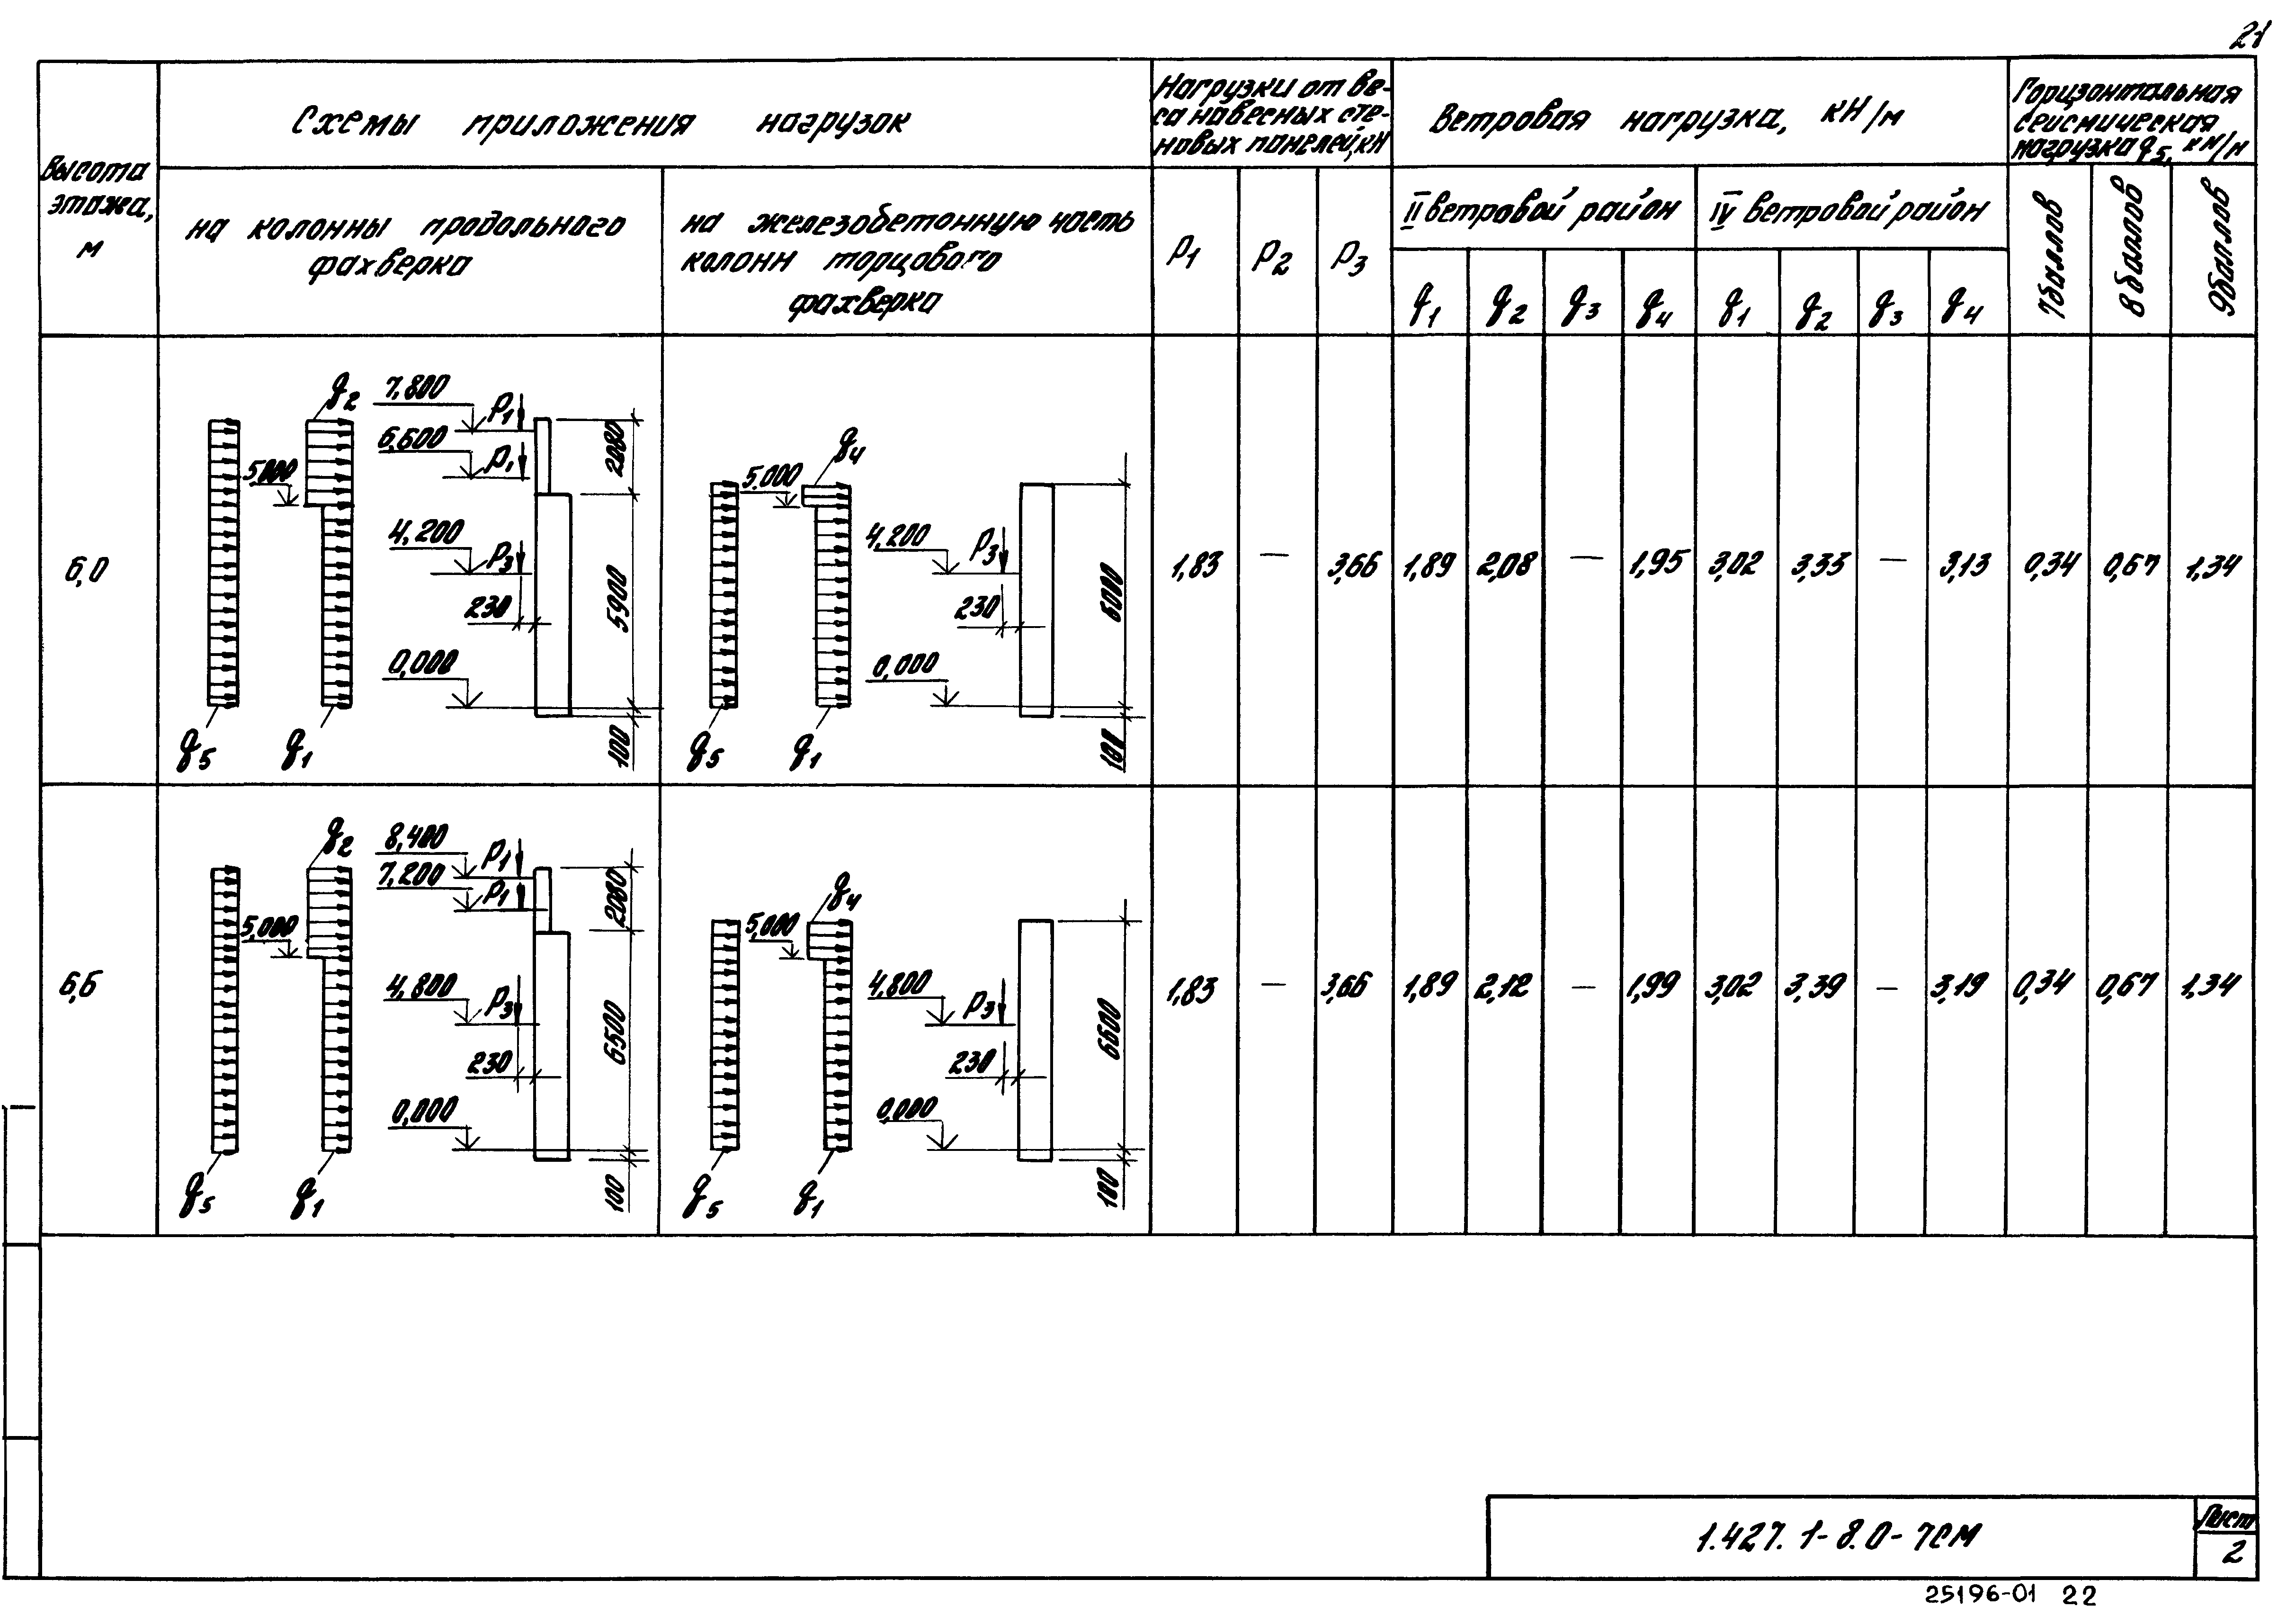 21
Высота
этажа,
м
Схемы приложения нагрузок
на колонны продольного
фахверка
на железобетонную часть
колонн торцового
фахверка
Нагрузки от ве-
са навесных сте-
новых панелей, кН
P1 P2 P3
Ветровая нагрузка, кН/м
II ветровой район
IV ветровой район
q1 q2 q3 q4 q1 q2 q3 q4
Горизонтальная
сейсмическая
нагрузка q5, кН/м
7 баллов
8 баллов
9 баллов
6,0
q2
7,800
P1
6,600
P1
5,000
4,200
P3
230
0,000
2080
5900
100
q5
q1
q4
5,000
4,200
P3
230
0,000
6000
100
q5
q1
1,83 — 3,66 1,89 2,08 — 1,95 3,02 3,33 — 3,13 0,34 0,67 1,34
6,6
q2
8,400
P1
7,200
P1
5,000
4,800
P3
230
0,000
2080
6500
100
q5
q1
q4
5,000
4,800
P3
230
0,000
6600
100
q5
q1
1,83 — 3,66 1,89 2,12 — 1,99 3,02 3,39 — 3,19 0,34 0,67 1,34
1.427.1-8.0-7СМ
Лист
2
25196-01 22